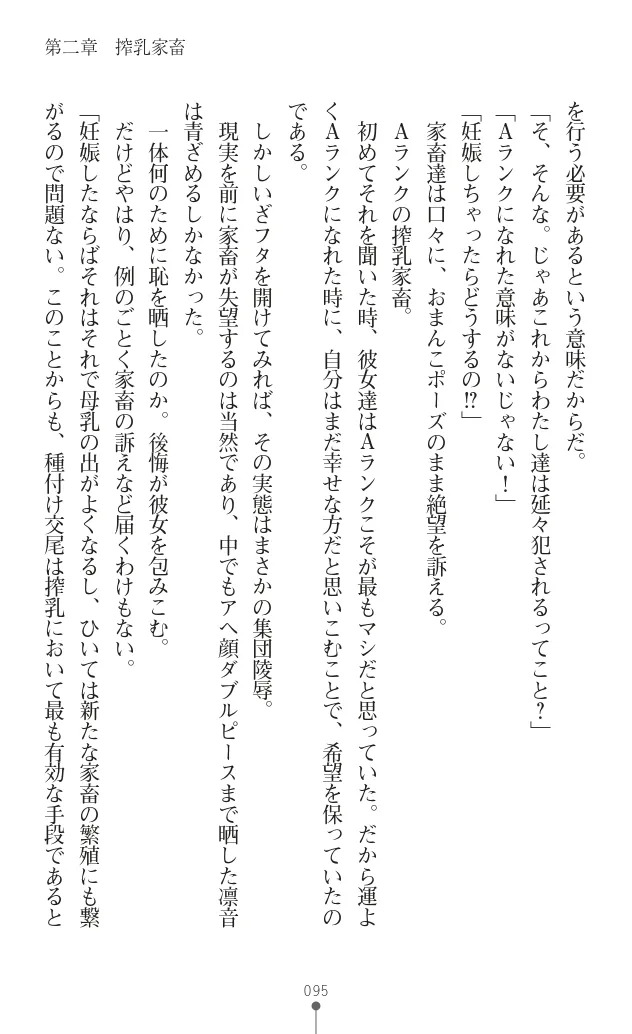 第二章　搾乳家畜
を行う必要があるという意味だからだ。
「そ、そんな。じゃあこれからわたし達は延々犯されるってこと？」
「Aランクになれた意味がないじゃない！」
「妊娠しちゃったらどうするの⁉」
家畜達は口々に、おまんこポーズのまま絶望を訴える。
Aランクの搾乳家畜。
初めてそれを聞いた時、彼女達はAランクこそが最もマシだと思っていた。だから運よ
くAランクになれた時に、自分はまだ幸せな方だと思いこむことで、希望を保っていたの
である。
しかしいざフタを開けてみれば、その実態はまさかの集団陵辱。
現実を前に家畜が失望するのは当然であり、中でもアヘ顔ダブルピースまで晒した凛音
は青ざめるしかなかった。
一体何のために恥を晒したのか。後悔が彼女を包みこむ。
だけどやはり、例のごとく家畜の訴えなど届くわけもない。
「妊娠したならばそれはそれで母乳の出がよくなるし、ひいては新たな家畜の繁殖にも繋
がるので問題ない。このことからも、種付け交尾は搾乳において最も有効な手段であると
095